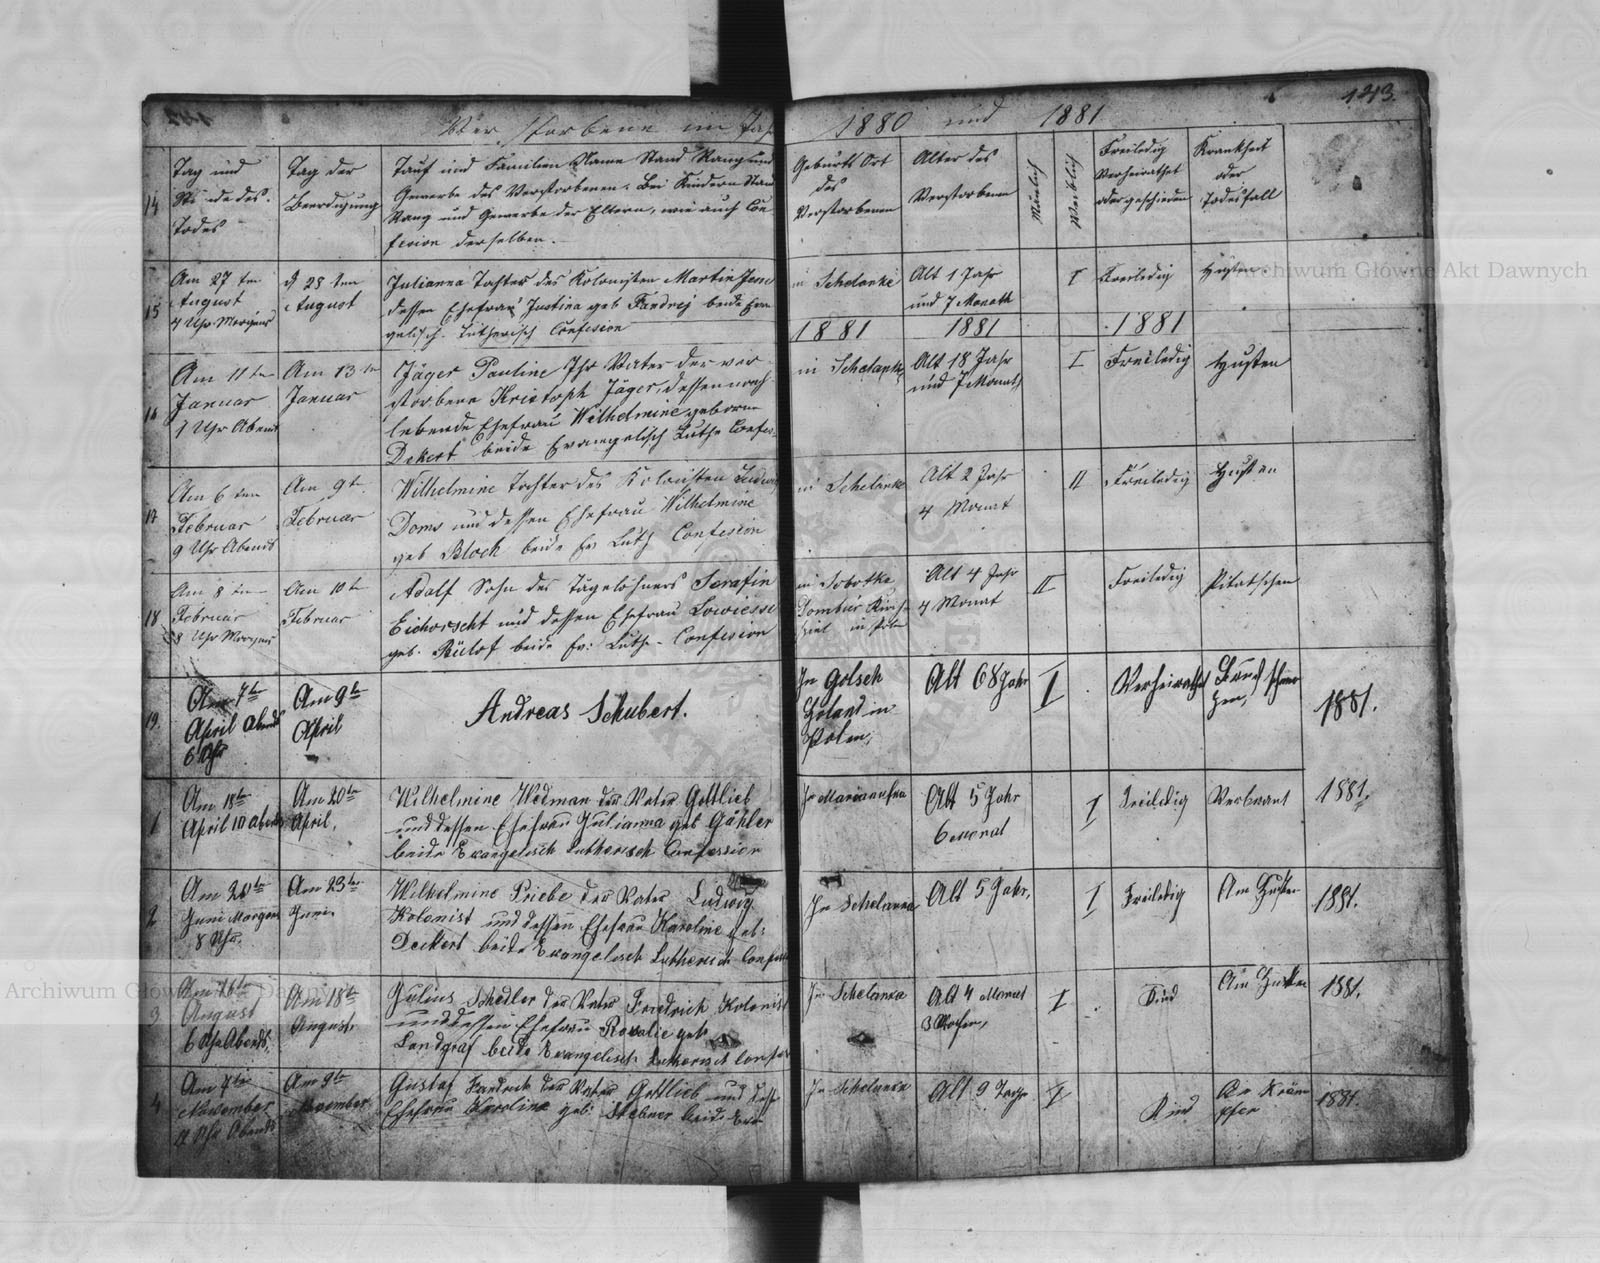 Verstorbene im Jahr 1880 und 1881
143.
14
Tag und
Stunde des
Todes
Tag der
Beerdigung
Tauf und Familien Name Stand Rang und
Gewerbe des Verstorbenen. Bei Kindern Stand
Rang und Gewerbe der Eltern, wie auch Con
fesion derselben.
Geburts Ort
des
Verstorbenen
Alter des
Verstorbenen
Mänlich
Weiblich
Freiledig
Verheirathet
oder geschieden
Krankheit
oder
Todesfall
15
Am 27 ten
August
7 Uhr Morgens
d 28 ten
August
Julianna Tochter des Kolonisten Martin
dessen Ehefrau Justina geb Fandrej beide Evan
gelisch. Lutherisch Confesion
in Schelanke
Alt 1 Jahr
und 7 Monath
I
Freiledig
Husten
1881
1881
1881
16
Am 11 ten
Januar
1 Uhr Abend
Am 13 ten
Januar
Jäger Pauline Ihr Vater der ver
storbene Kristoph Jäger, dessen noch
lebende Ehefrau Wilhelmine geborne
Dekert beide Evangelisch Luthe Confes
in Schelanke
Alt 18 Jahr
und 7 Monat
I
Freiledig
Husten
17
Am 6 ten
Februar
9 Uhr Abend
Am 9 t
Februar
Wilhelmine Tochter des Kolonisten Ludwig
Doms und dessen Ehefrau Wilhelmine
geb Block beide Ev Luth Confesion
in Schelanke
Alt 2 Jahr
4 Monat
II
Freiledig
Husten
18
Am 8 ten
Februar
8 Uhr Morgens
Am 10 t
Februar
Adolf Sohn des Tagelöhners Serafin
Eichorscht und dessen Ehefrau Lowiesse
geb. Rülof beide Ev: Luthe - Confesion
in Sobotke
Kirch
spiel in Polen
Alt 4 Jahr
4 Monat
II
Freiledig
19.
Am 7ten
April Abend
6 Uhr
Am 9ten
April
Andreas Schubert.
In Golsch
Holand in
Polen,
Alt 68 Jahr
I
Verheirathet
1881.
1
Am 18ten
April 10 Abends
Am 20ten
April,
Wilhelmine Wedman der Vater Gottlieb
und dessen Ehefrau Julianna geb Gähler
beide Evangelisch Lutherisch Confession
In
Alt 5 Jahr
6 monat
I
Freiledig
Verbrant
1881.
2
Am 20ten
Juni Morgen
8 Uhr.
Am 23ten
Juni
Wilhelmine Priebe der Vater Ludwig
Kolonist und dessen Ehefrau Karoline geb:
Deckert beide Evangelisch Lutherisch Confess
In Schelanka
Alt 5 Jahr,
I
Freiledig
Am Husten
1881.
3
Am 16ten
August
6 Uhr Abends,
Am 18ten
August,
Julius Schedler der Vater Friedrich Kolonist
und dessen Ehefrau Rosalie geb
Landgraf beide Evangelisch Lutherisch Confes
In Schelanka
Alt 4 Monat
3 Wochen,
I
Kind
Am Husten
1881.
4
Am 7ten
November
11 Uhr Abends
Am 9ten
November
Gustaf Fandrich der Vater Gottlieb und dess
Ehefrau Karoline geb: Stebner beide Eva
In Schelanka
Alt 9 Tage
I
Kind
An Kräm
pfen
1881.
Archiwum Główne Akt Dawnych
Archiwum Główne Akt Dawnych